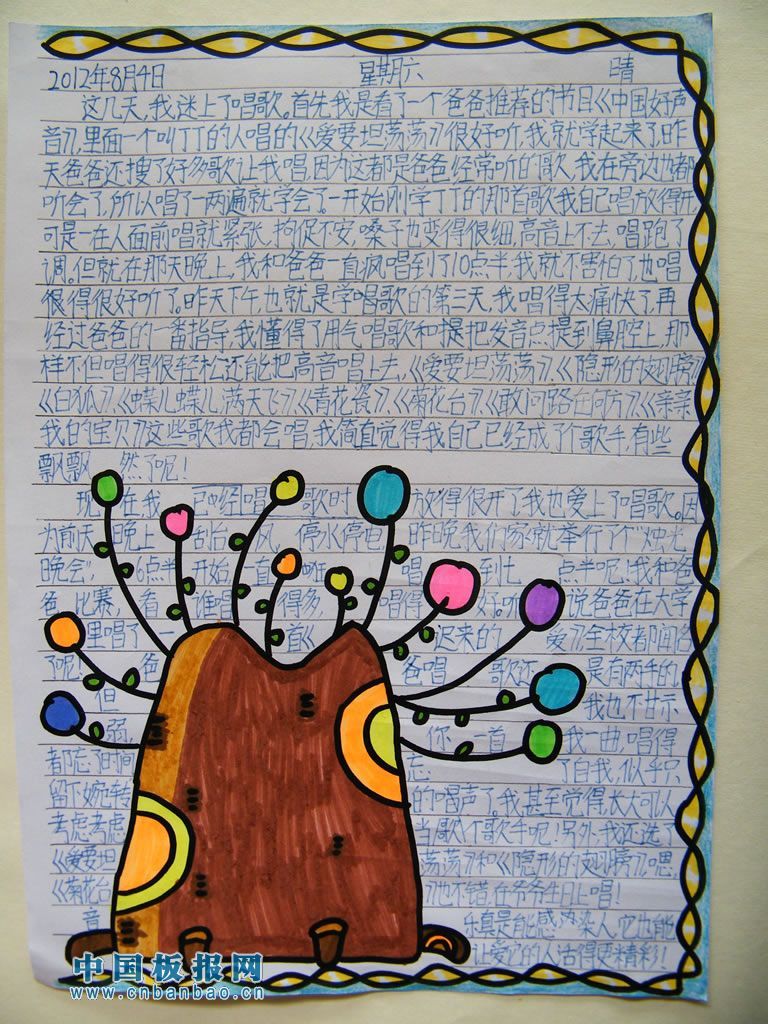 2012年8月4日 星期六 晴
这几天,我迷上了唱歌。首先我是看了一个爸爸推荐的节目《中国好声
音》,里面一个叫丁丁的人唱的《爱要坦荡荡》很好听,我就学起来了,昨
天爸爸还搜了好多歌让我唱,因为这都是爸爸经常听的歌,我在旁边也都
听会了,所以唱了一两遍就学会了。一开始刚学丁丁的那首歌我自己唱放得开
可是一在人面前唱就紧张,拘促不安,嗓子也变得很细,高音上不去,唱跑了
调。但就在那天晚上,我和爸爸一直疯唱到了10点半,我就不害怕了,也唱
很得很好听了。昨天下午,也就是学唱歌的第三天,我唱得太痛快了,再
经过爸爸的一番指导,我懂得了用气唱歌和提把发音点提到鼻腔上,那
样不但唱得很轻松还能把高音唱上去,《爱要坦荡荡》《隐形的翅膀》
《白狐》、《蝶儿蝶儿满天飞》《青花瓷》、《菊花台》《敢问路在何方》《亲亲
我的宝贝》这些歌我都会唱,我简直觉得我自己已经成了个歌手,有些
飘飘 然了呢!
现 在我 已经唱 歌时 放得很开了我也爱上了唱歌。因
为前天 晚上 刮台 风, 停水停电, 昨晚我们家就举行了个"烛光
晚会", 6点半 开始 一直 唱 到七 点半呢!我和爸
爸 比赛, 看 谁唱 得多, 唱得 好。听 说爸爸在大学
里唱了 一 首《 迟来的 爱》全校都闻名
了呢! 爸 爸唱 歌还 是有两手的
但 我也不甘示
弱, 你 一首 我一曲,唱得
都忘了时间 忘 了自我,似乎只
留下婉转 的唱声了。我甚至觉得长大可以
考虑考虑 当歌个歌手呢!另外,我还选了
《爱要坦 荡荡》和《隐形的翅膀》,嗯,
《菊花台 》也不错,在爷爷生日上唱!
音 乐真是能感染人,它也能
让爱它的人活得更精彩!
中国板报网
www.cnbanbao.cn